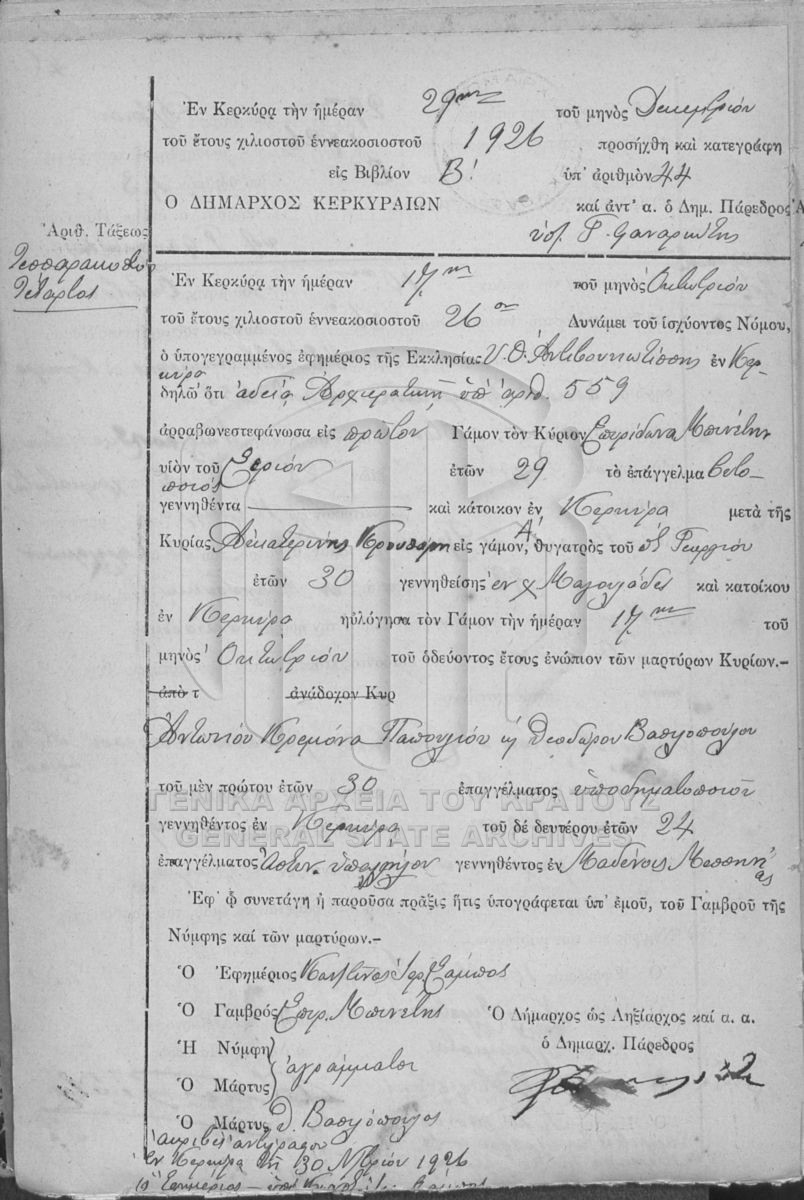 Ἐν Κερκύρᾳ τὴν ἡμέραν 29ην τοῦ μηνὸς Δεκεμβρίου
τοῦ ἔτους χιλιοστοῦ ἐννεακοσιοστοῦ 1926 προσήχθη καὶ κατεγράφη
εἰς Βιβλίον Β! ὑπ' ἀριθμὸν 44
Ο ΔΗΜΑΡΧΟΣ ΚΕΡΚΥΡΑΙΩΝ καί ἀντ' α. ὁ Δημ. Πάρεδρος Α
ὑπ. Γ. Φαναριώτης
Ἀριθ. Τάξεως
Τεσσαρακοστὸν
Τέταρτος
Ἐν Κερκύρᾳ τὴν ἡμέραν 17ην τοῦ μηνὸς Ὀκτωβρίου
τοῦ ἔτους χιλιοστοῦ ἐννεακοσιοστοῦ 26ου Δυνάμει τοῦ ἰσχύοντος Νόμου,
ὁ ὑπογεγραμμένος ἐφημέριος τῆς Ἐκκλησίας Υ.Θ. Ἀντιβουνιωτίσσης ἐν Κερ-
κύρᾳ
δηλῶ ὅτι ἀδείᾳ Ἀρχιερατικῇ ὑπ' ἀριθ. 559
ἀρραβωνεστεφάνωσα εἰς πρῶτον Γάμον τὸν Κύριον Σπυρίδωνα Μπινέτην
υἱὸν τοῦ ἐτῶν 29 τὸ ἐπάγγελμα
ποιὸς
γεννηθέντα καὶ κάτοικον ἐν Κερκύρᾳ μετὰ τῆς
Κυρίας Αἰκατερίνης εἰς Α! γάμον, θυγατρὸς τοῦ Γεωργίου
ἐτῶν 30 γεννηθείσης ἐν χ. Μαγουλάδες καὶ κατοίκου
ἐν Κερκύρᾳ ηὐλόγησα τὸν Γάμον τὴν ἡμέραν 17ην τοῦ
μηνὸς Ὀκτωβρίου τοῦ ὁδεύοντος ἔτους ἐνώπιον τῶν μαρτύρων Κυρίων.–
ἀπὸ τ ἀνάδοχον Κυρ
Ἀντωνίου Κρεμόνα Παπουλίου κ Θεοδώρου Βασιλοπούλου
τοῦ μὲν πρώτου ἐτῶν 30 ἐπαγγέλματος ὑποδηματοποιοῦ
γεννηθέντος ἐν Κερκύρᾳ τοῦ δέ δευτέρου ἐτῶν 24
ἐπαγγέλματος Ἀστυν. γεννηθέντος ἐν Μεσσηνί
ας
ΓΕΝΙΚΑ ΑΡΧΕΙΑ ΤΟΥ ΚΡΑΤΟΥΣ
GENERAL STATE ARCHIVES
Ἐφ' ᾧ συνετάγη ἡ παροῦσα πρᾶξις ἥτις ὑπογράφεται ὑπ' ἐμοῦ, τοῦ Γαμβροῦ τῆς
Νύμφης καί τῶν μαρτύρων.–
Ὁ Ἐφημέριος Κωνστῖνος Ἱερ.
Ὁ Γαμβρός Σπυρ. Μπινέτης Ὁ Δήμαρχος ὡς Ληξίαρχος καί α. α.
Ἡ Νύμφη ὁ Δημαρχ. Πάρεδρος
ἀγράμματοι
Ὁ Μάρτυς
Ὁ Μάρτυς Θ. Βασιλόπουλος
ἀκριβὲς ἀντίγραφον
ἐν Κερκύρᾳ τῇ 30 1926
ὁ Ἐφημέριος